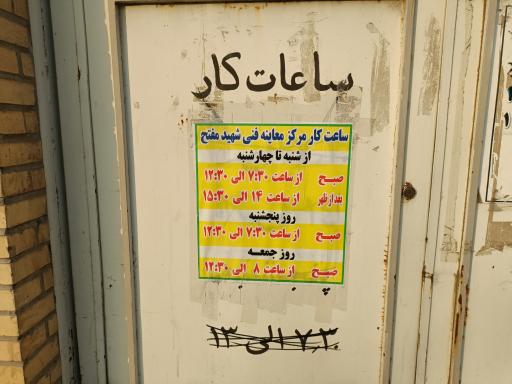 ساعات کار
ساعت کار مرکز معاینه فنی شهید مفتح
از شنبه تا چهارشنبه
صبح از ساعت ۷:۳۰ الی ۱۲:۳۰
بعدازظهر از ساعت ۱۴ الی ۱۵:۳۰
روز پنجشنبه
صبح از ساعت ۷:۳۰ الی ۱۲:۳۰
روز جمعه
صبح از ساعت ۸ الی ۱۲:۳۰
۷٫۳۰ الی ۱۳